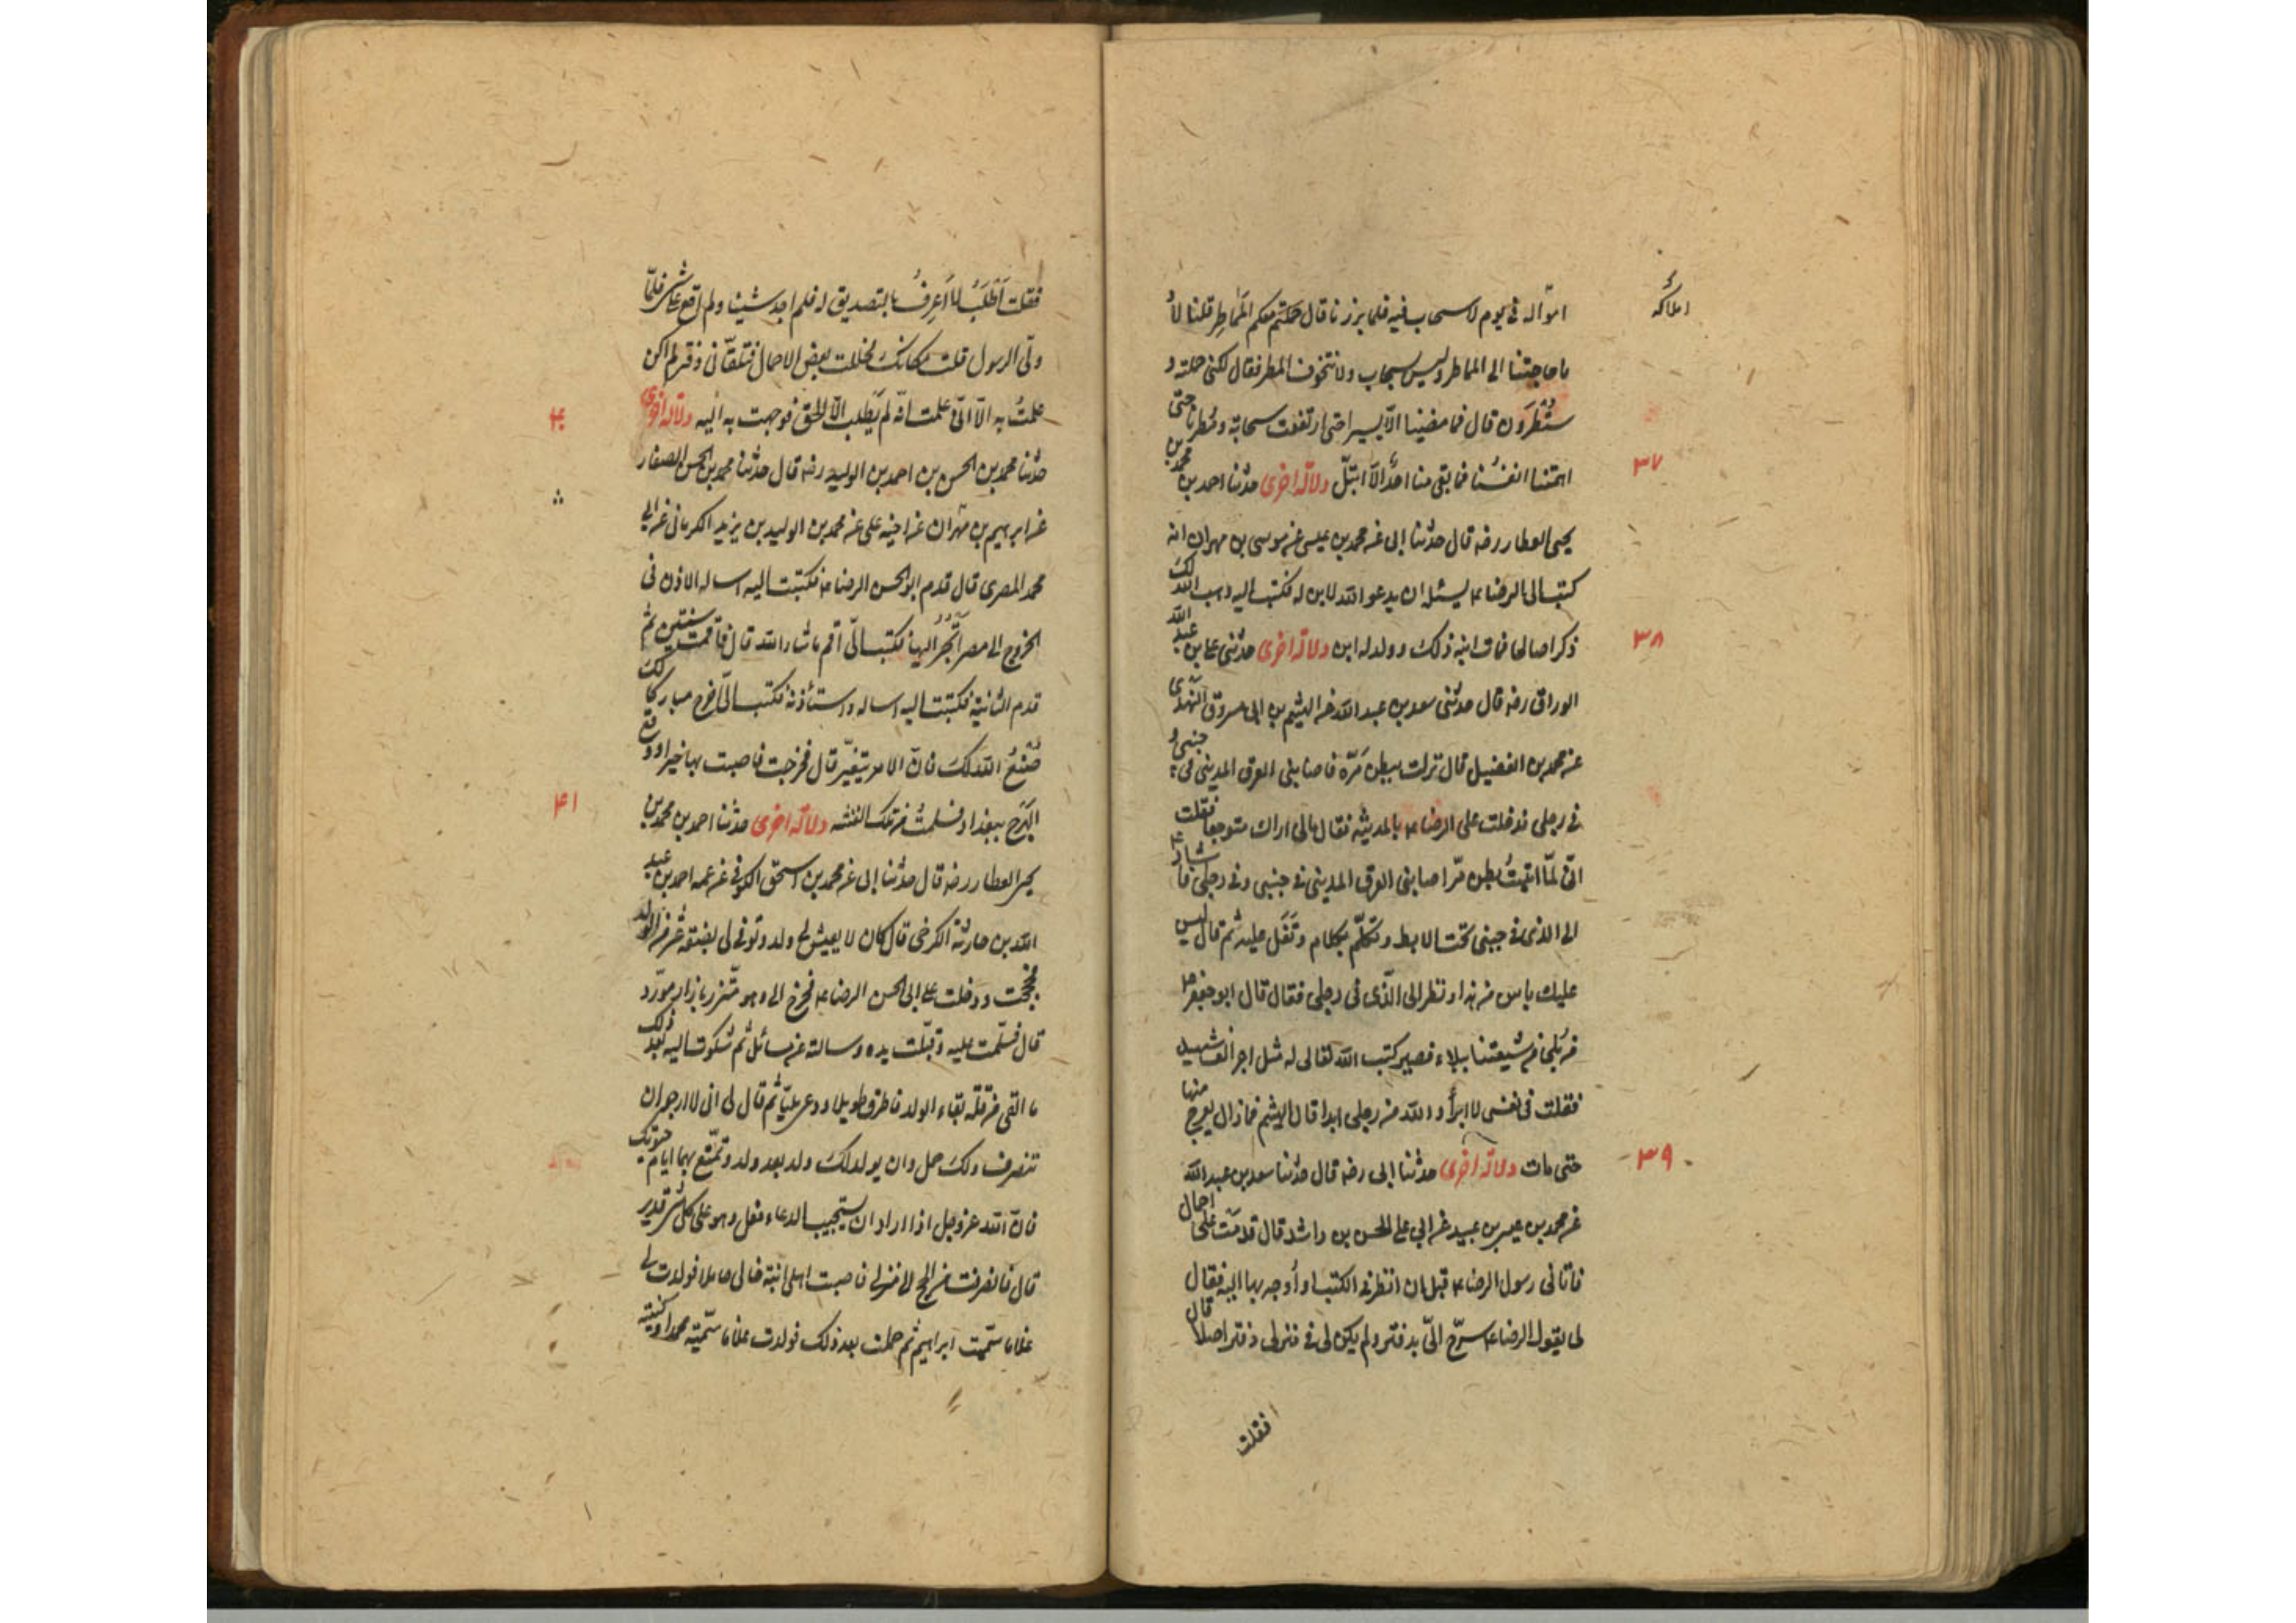 املاكه
امواله في يوم لا سحاب فيه فلما برزنا قال حملتم معكم المماطر قلنا لا
ما حاجتنا الى المماطر وليس سحاب ولا نتخوف المطر فقال لكنى حملته و
ستمطرون قال فما مضينا الا يسيرا حتى ارتفعت سحابة ومطرنا حتى
اهمتنا انفسنا فما بقى منا احد الا ابتل دلالة اخرى حدثنا احمد بن محمد بن
٣٧
يحيى العطار رضه قال حدثنا ابى عن محمد بن عيسى عن موسى بن مهران انه
كتب الى الرضا ع يسئله ان يدعو الله لابن له فكتب اليه وهب الله لك
ذكرا صالحا فمات ابنه ذلك وولد له ابن دلالة اخرى حدثنى على بن عبد الله
٣٨
الوراق رضه قال حدثنى سعد بن عبد الله عن الهيثم بن ابى مسروق النهدى
عن محمد بن الفضيل قال نزلت ببطن مرّة فاصابنى العرق المدينى فى جنبى و
فى رجلى فدخلت على الرضا ع بالمدينة فقال مالى اراك متوجعا فقلت
انى لمّا اتيت بطن مرّ اصابنى العرق المدينى فى جنبى وفى رجلى فاشار ع
الى الذى فى جنبى تحت الابط وتكلّم بكلام وتفل عليه ثم قال ليس
عليك باس من هذا ونظر الى الّذى فى رجلى فقال قال ابو جعفر ع
من بلى من شيعتنا ببلاء فصبر كتب الله تعالى له مثل اجر الف شهيد
فقلت فى نفسى لا ابرأ والله من رجلى ابدا قال الهيثم فما زال يعرج منها
حتى مات دلالة اخرى حدثنا ابى رضه قال حدثنا سعد بن عبد الله
٣٩
عن محمد بن عيسى بن عبيد عن ابى على الحسن بن راشد قال قدمت علىّ احمال
فاتانى رسول الرضا ع قبل ان انظر فى الكتب او أوجه بها اليه فقال
لى يقول الرضا ع سرّح الىّ بدفتر ولم يكن لى فى منزلى دفتر اصلا قال
فقلت
فقلت أطلب ما لا أعرف بالتصديق له فلم اجد شيئا ولم اقع على شىء فلمّا
ولّى الرسول قلت مكانك فحللت بعض الاحمال فتلقّانى دفتر لم اكن
علمت به الّا انّى علمت انّه لم يطلب الّا الحق فوجهت به اليه دلالة اخرى
۴٠
حدثنا محمد بن الحسن بن احمد بن الوليد رضه قال حدثنا محمد بن الحسن الصفار
عن ابرهيم بن مهران عن اخيه على عن محمد بن الوليد بن يزيد الكرمانى عن ابى
محمد المصرى قال قدم ابو الحسن الرضا ع فكتبت اليه اساله الاذن فى
الخروج الى مصر أتجر اليها فكتب الىّ اقم ما شاء الله قال فاقمت سنتين ثم
قدم الثالثة فكتبت اليه اساله واستأذنه فكتب الىّ اخرج مباركا لك
صنع الله لك فانّ الامر يتغيّر قال فخرجت فاصبت بها خيرا ووقع
الهرج ببغداد فسلمت من تلك الفتنه دلالة اخرى حدثنا احمد بن محمد بن
۴١
يحيى العطار رضه قال حدثنا ابى عن محمد بن اسحق الكوفى عن عمه احمد بن عبد
الله بن حارثة الكرخى قال كان لا يعيش لى ولد وتوفى لى بضعة عشر من الولد
فحججت ودخلت على ابى الحسن الرضا ع فخرج الى وهو متّزر بازار مورّد
قال فسلّمت عليه وقبّلت يده وسالته عن مسائل ثم شكوت اليه بعد ذلك
ما القى من قلّة بقاء الولد فاطرق طويلا ودعا مليّا ثم قال لى انى لارجو ان
تنصرف ولك حمل وان يولد لك ولد بعد ولد وتمتّع بهما ايام حيوتك
فانّ الله عز وجل اذا اراد ان يستجيب الدعاء فعل وهو على كل شىء قدير
قال فانصرفت من الحج الى منزلى فاصبت اهلى ابنة خالى حاملا فولدت لى
غلاما سمّيته ابراهيم ثم حملت بعد ذلك فولدت غلاما سمّيته محمدا وكنيته